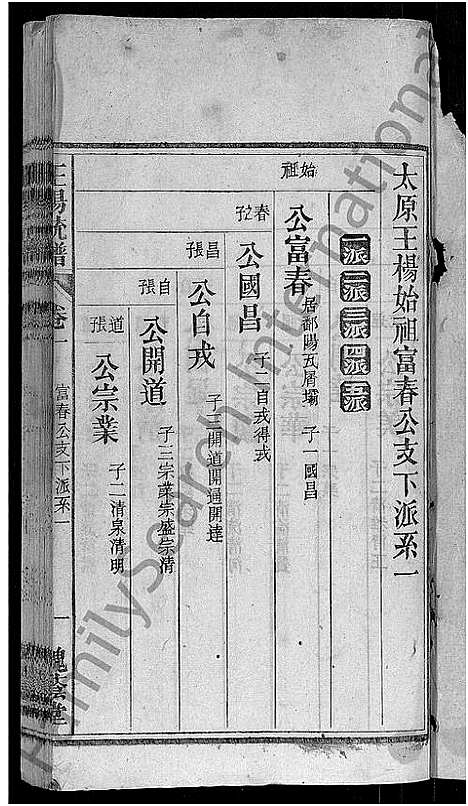 太原王楊始祖富春公支下派系一
一派 二派 三派 四派 五派
始祖
公富春 居鄱陽瓦屑壩 子一國昌
春子
公國昌 子二自戎得戎
昌張
公自戎 子三開道開通開達
自張
公開道 子三宗業宗盛宗清
道張
公宗業 子二清泉清明
王楊統譜 卷一 富春公支下派系一 一 槐蔭堂
FamilySearch International